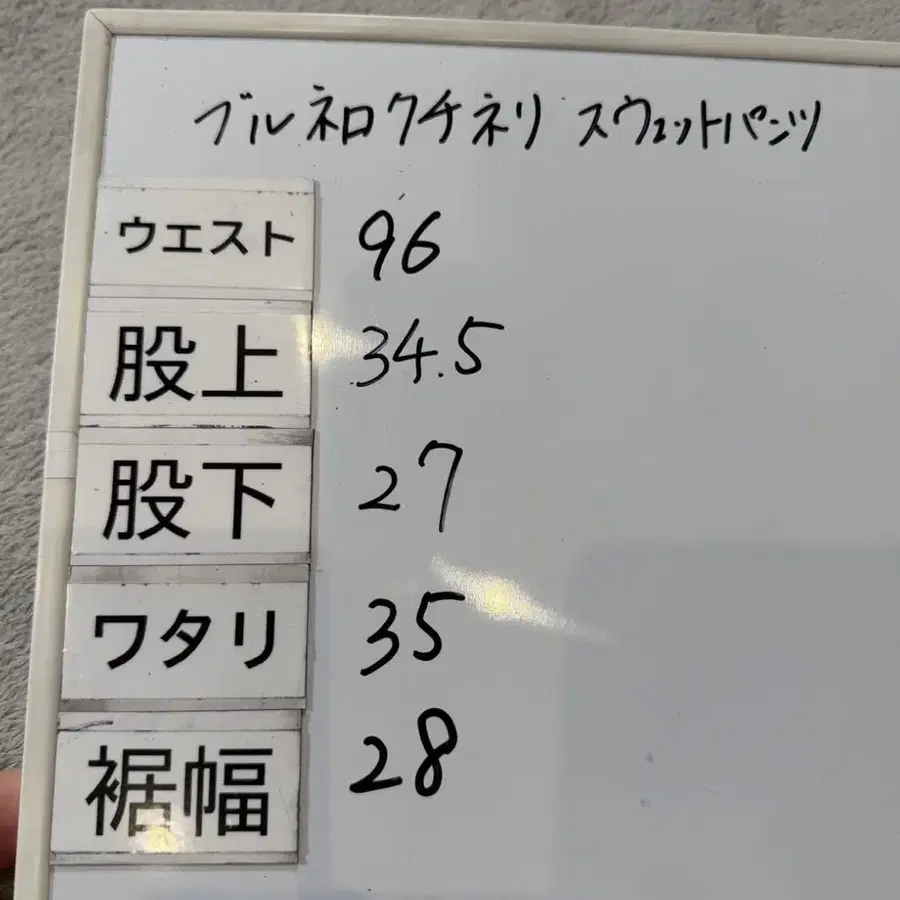 ブルネロクチネリ スウェットパンツ
ウエスト 96
股上 34.5
股下 27
ワタリ 35
裾幅 28